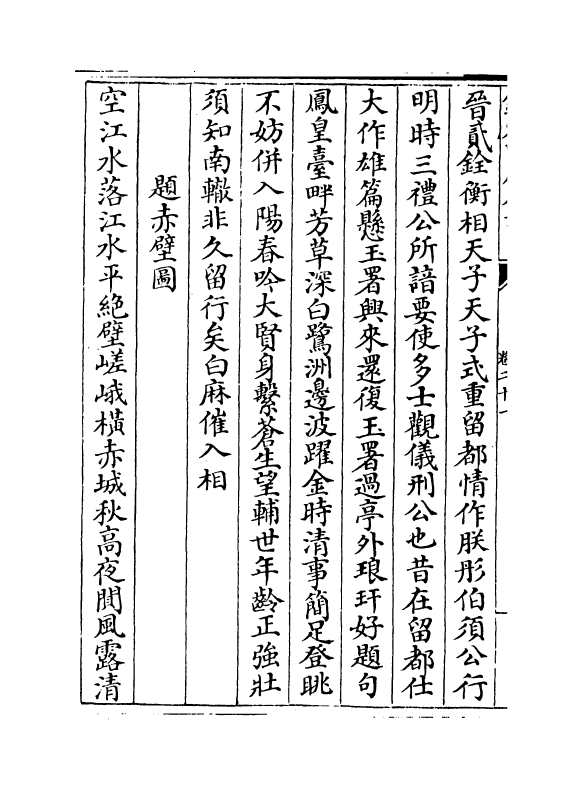 晉貳銓衡相天子天子式重留都情作朕彤伯須公行
明時三禮公所諳要使多士觀儀刑公也昔在留都仕
大作雄篇懸玉署興來還復玉署過亭外琅玕好題句
鳳皇臺畔芳草深白鷺洲邊波躍金時清事簡足登眺
不妨併入陽春吟大賢身繫蒼生望輔世年齡正強壯
須知南轍非久留行矣白麻催入相
題赤壁圖
空江水落江水平絶壁嵯峨橫赤城秋高夜閴風露清